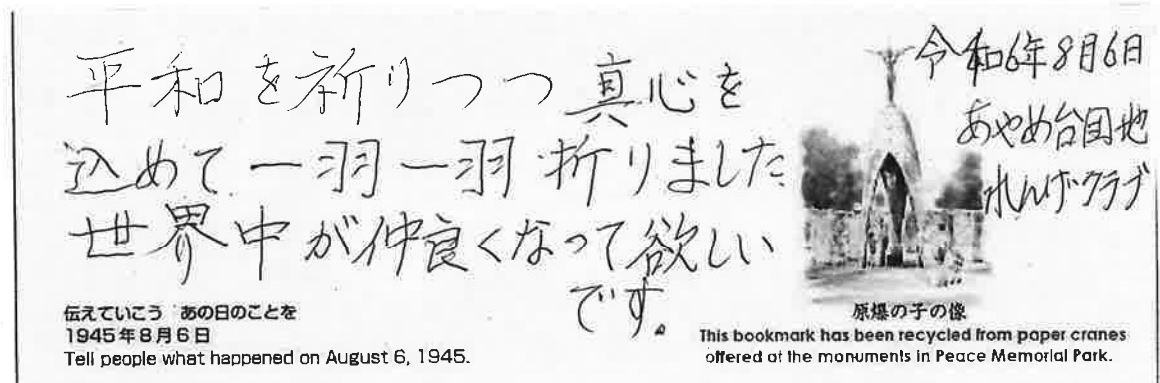 平和を祈りつつ真心を
込めて一羽一羽折りました
世界中が仲良くなって欲しい
です。
令和6年8月6日
あやめ台団地
れんげクラブ
伝えていこう あの日のことを
1945年8月6日
Tell people what happened on August 6, 1945.
原爆の子の像
This bookmark has been recycled from paper cranes
offered at the monuments in Peace Memorial Park.